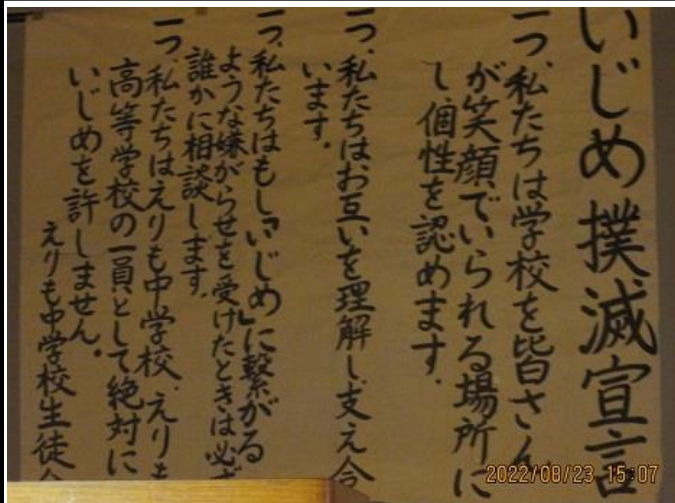 いじめ撲滅宣言
一つ、私たちは学校を皆さん
が笑顔でいられる場所に
し、個性を認めます。
一つ、私たちはお互いを理解し、支え合
います。
一つ、私たちはもし「いじめ」に繋がる
ような嫌がらせを受けたときは必ず
誰かに相談します。
一つ、私たちはえりも中学校、えりも
高等学校の一員として絶対に
いじめを許しません。
えりも中学校生徒会
2022/08/23 15:07